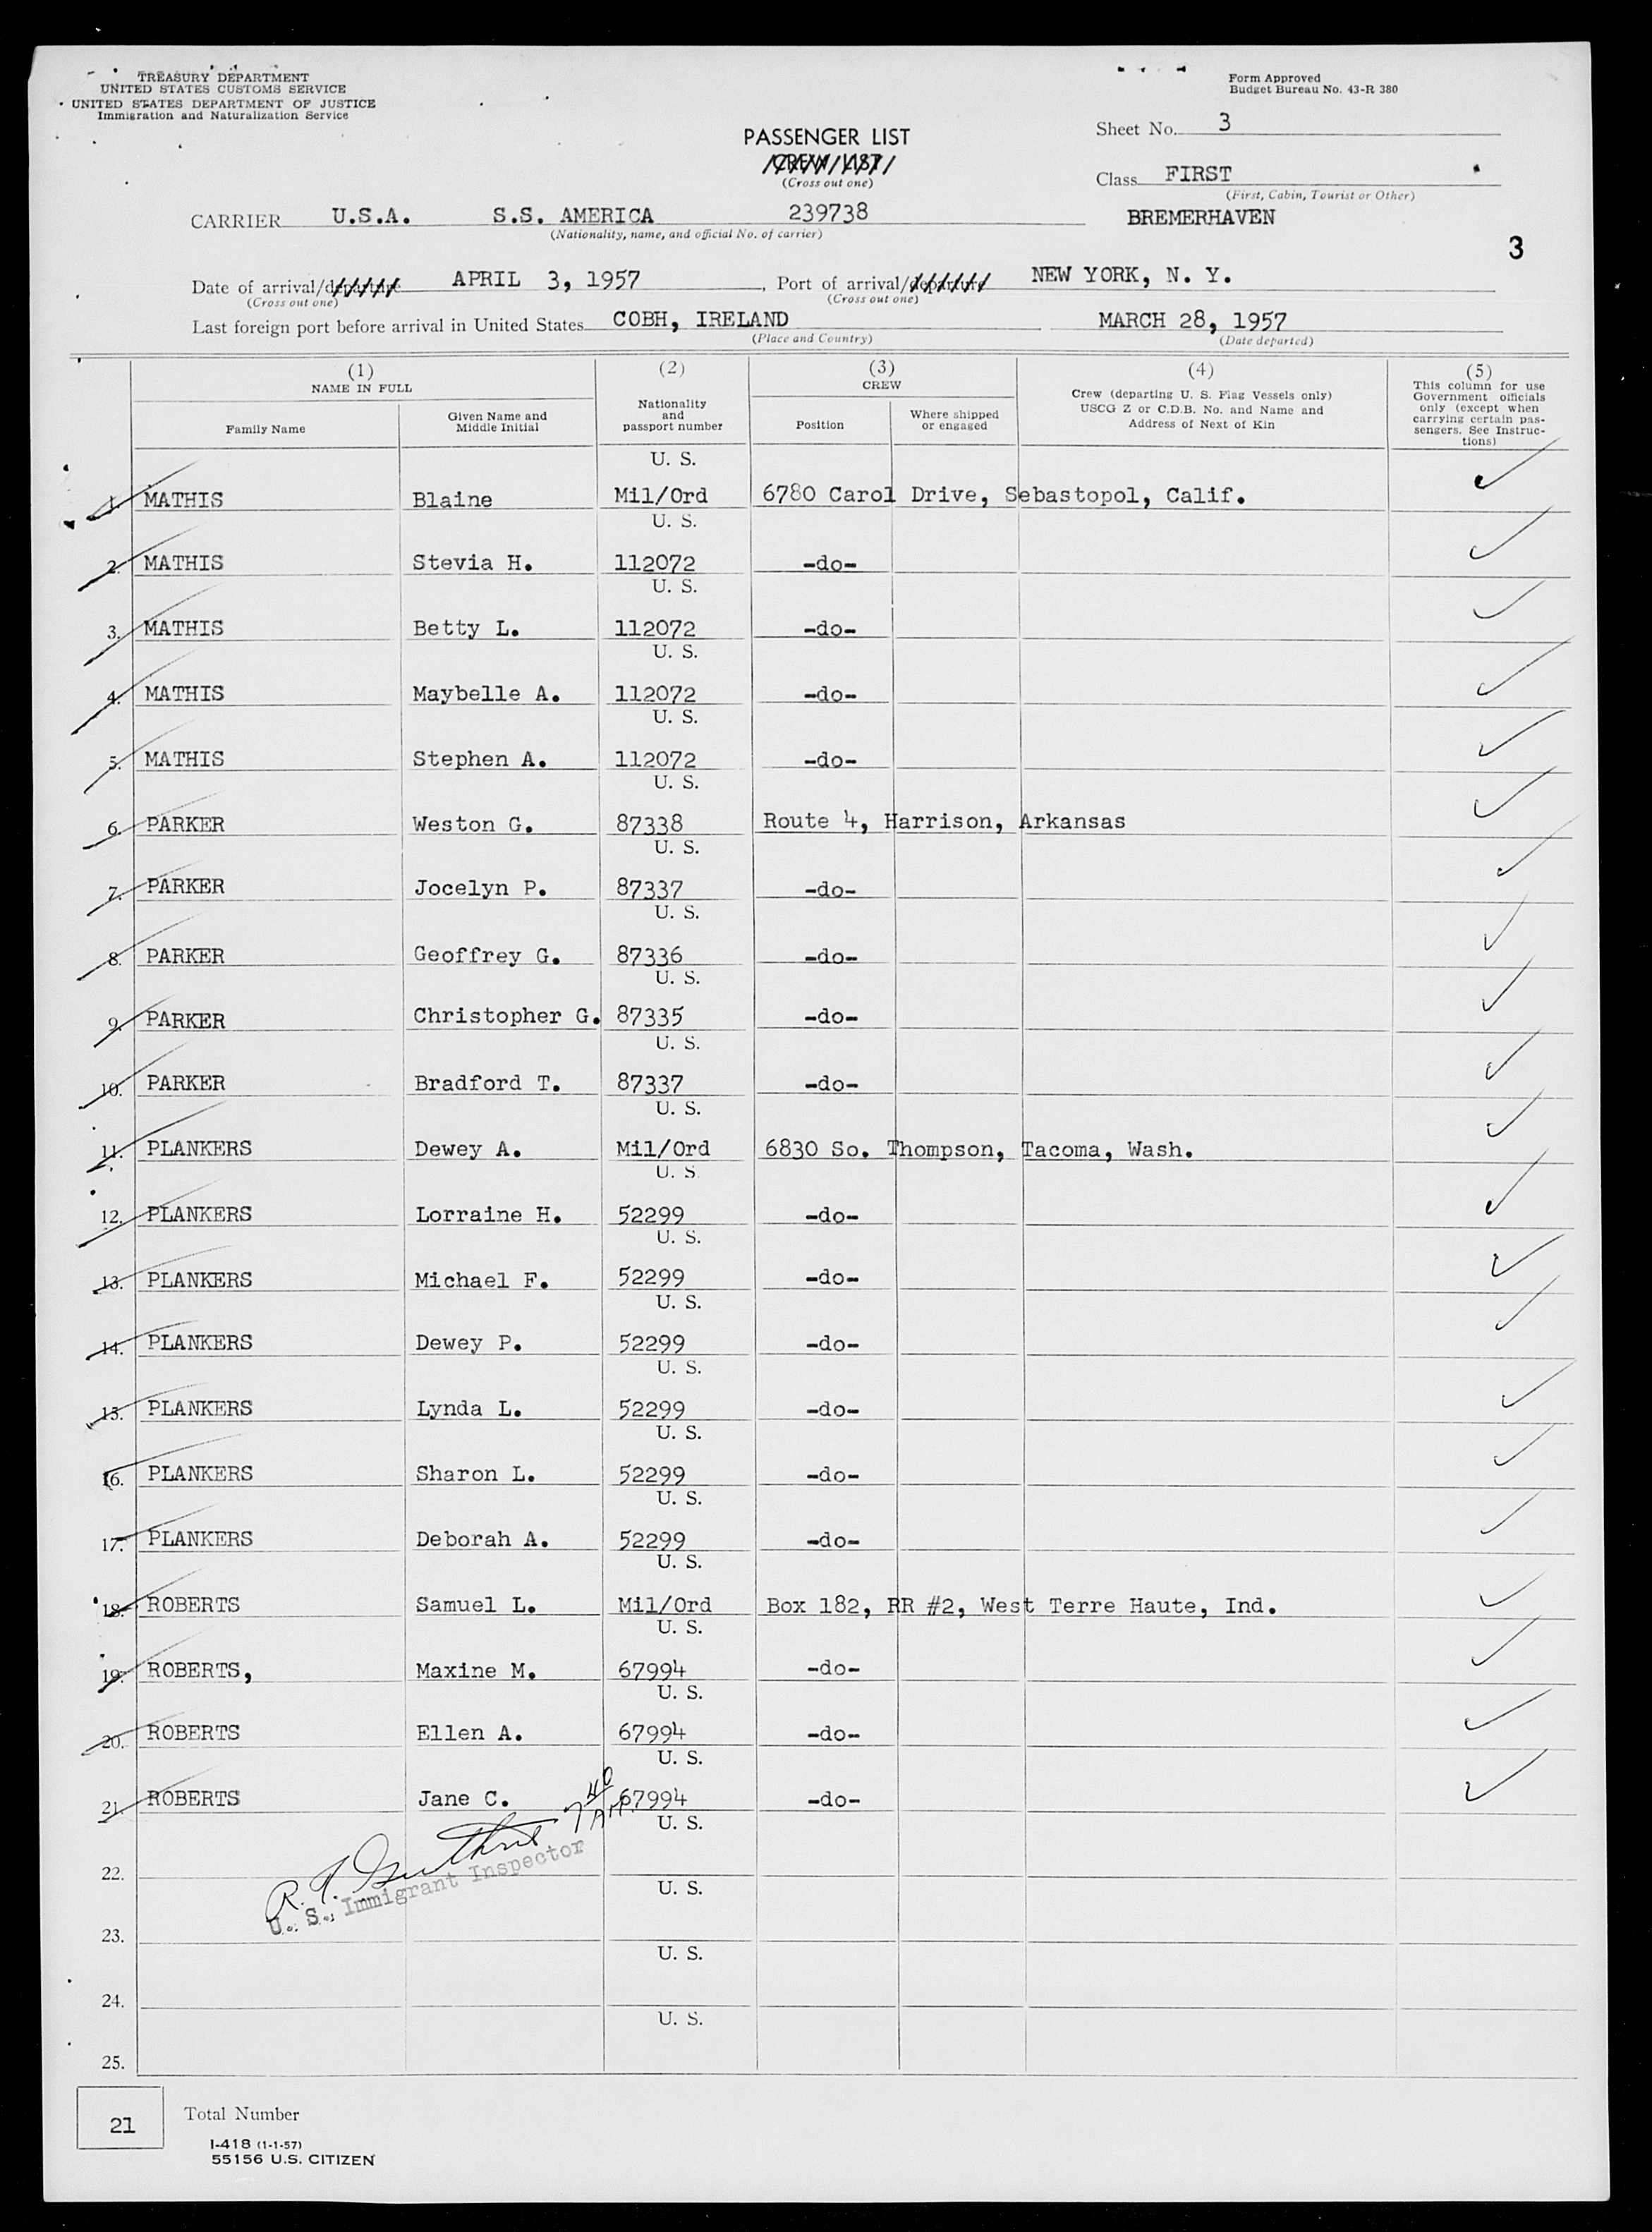 TREASURY DEPARTMENT
UNITED STATES CUSTOMS SERVICE
UNITED STATES DEPARTMENT OF JUSTICE
Immigration and Naturalization Service
Form Approved
Budget Bureau No. 43-R 380
PASSENGER LIST
CREW LIST
(Cross out one)
Sheet No. 3
Class FIRST
(First, Cabin, Tourist or Other)
CARRIER U.S.A. S.S. AMERICA 239738 BREMERHAVEN
(Nationality, name, and official No. of carrier)
3
Date of arrival/departure APRIL 3, 1957, Port of arrival/departure NEW YORK, N. Y.
(Cross out one) (Cross out one)
Last foreign port before arrival in United States COBH, IRELAND MARCH 28, 1957
(Place and Country) (Date departed)
(1) NAME IN FULL
Family Name
Given Name and Middle Initial
(2) Nationality and passport number
(3) CREW
Position
Where shipped or engaged
(4) Crew (departing U. S. Flag Vessels only) USCG Z or C.D.B. No. and Name and Address of Next of Kin
(5) This column for use Government officials only (except when carrying certain passengers. See Instructions)
U. S.
1. MATHIS Blaine Mil/Ord 6780 Carol Drive, Sebastopol, Calif.
U. S.
2. MATHIS Stevia H. 112072 -do-
U. S.
3. MATHIS Betty L. 112072 -do-
U. S.
4. MATHIS Maybelle A. 112072 -do-
U. S.
5. MATHIS Stephen A. 112072 -do-
U. S.
6. PARKER Weston G. 87338 Route 4, Harrison, Arkansas
U. S.
7. PARKER Jocelyn P. 87337 -do-
U. S.
8. PARKER Geoffrey G. 87336 -do-
U. S.
9. PARKER Christopher G. 87335 -do-
U. S.
10. PARKER Bradford T. 87337 -do-
U. S.
11. PLANKERS Dewey A. Mil/Ord 6830 So. Thompson, Tacoma, Wash.
U. S.
12. PLANKERS Lorraine H. 52299 -do-
U. S.
13. PLANKERS Michael F. 52299 -do-
U. S.
14. PLANKERS Dewey P. 52299 -do-
U. S.
15. PLANKERS Lynda L. 52299 -do-
U. S.
16. PLANKERS Sharon L. 52299 -do-
U. S.
17. PLANKERS Deborah A. 52299 -do-
U. S.
18. ROBERTS Samuel L. Mil/Ord Box 182, RR #2, West Terre Haute, Ind.
U. S.
19. ROBERTS, Maxine M. 67994 -do-
U. S.
20. ROBERTS Ellen A. 67994 -do-
U. S.
21. ROBERTS Jane C. 67994 -do-
U. S.
7 40 AM
R. Guthrie
U. S. Immigrant Inspector
22.
U. S.
23.
U. S.
24.
U. S.
25.
21 Total Number
I-418 (1-1-57)
55156 U.S. CITIZEN